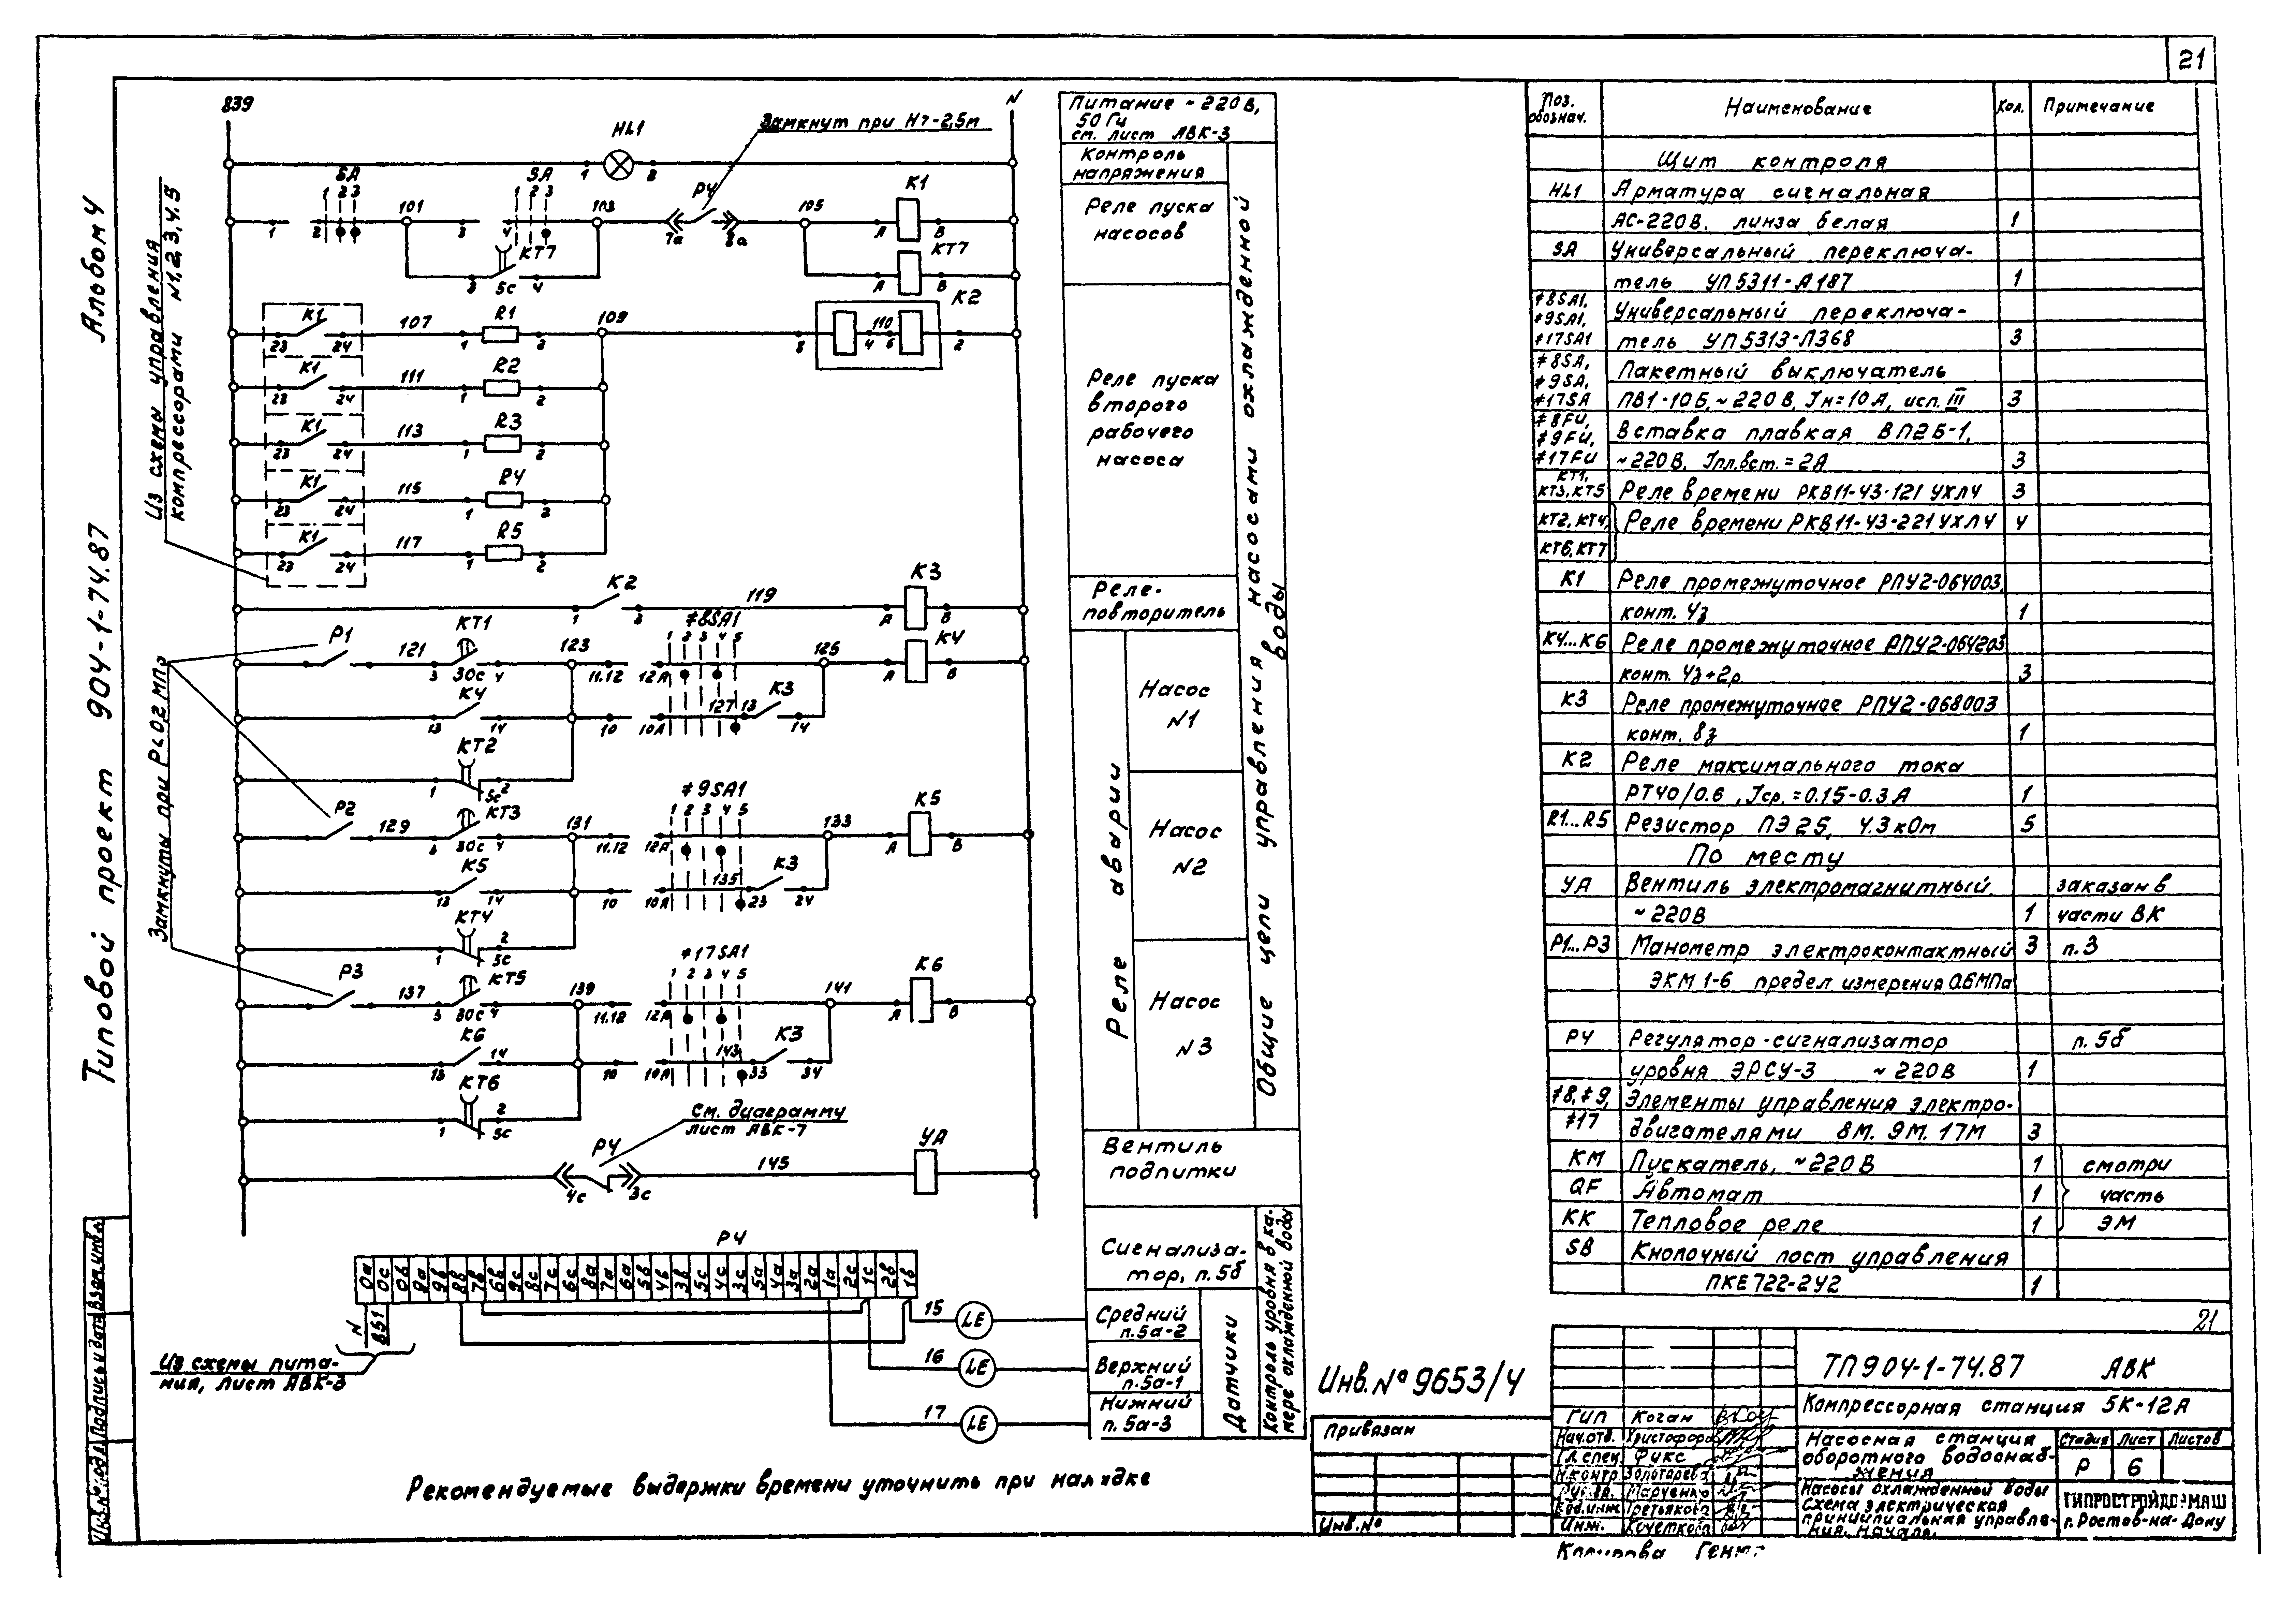 21
Альбом 4
Типовой проект 904-1-74.87
839
N
HL1
1
2
Замкнут при H > -2,5м
Из схемы управления
компрессорами N1,2,3,4,5
SA
1 2 3
SA
1 2 3
1
2
101
3
4
103
P4
7а
8а
105
K1
А
В
KT7
3
5с
4
KT7
А
В
K1
23
24
107
R1
1
2
109
K2
8
4
110
6
2
K1
23
24
111
R2
1
2
K1
23
24
113
R3
1
2
K1
23
24
115
R4
1
2
K1
23
24
117
R5
1
2
K2
1
3
119
K3
А
В
Замкнуты при P<02мПа
P1
121
KT1
3
30с
4
123
11.12
≠8SA1
1 2 3 4 5
12А
125
K4
А
В
K4
13
14
10
10А
127
13
K3
14
KT2
1
5с
2
P2
129
KT3
3
30с
4
131
11.12
≠9SA1
1 2 3 4 5
12А
133
K5
А
В
K5
13
14
10
10А
135
23
K3
24
KT4
1
5с
2
P3
137
KT5
3
30с
4
139
11.12
≠17SA1
1 2 3 4 5
12А
141
K6
А
В
K6
13
14
10
10А
143
33
K3
34
KT6
1
5с
2
См. диаграмму
лист АВК-7
P4
4с
3с
145
УА
P4
0а 0с 0в 9а 9в 8в 7в 6в 9с 8с 7с 6с 8а 7а 6а 5в 4в 3в 5с 4с 3с 5а 4а 3а 2а 1а 2с 1с 2в 1в
N
851
Из схемы пита-
ния, лист АВК-3
15
LE
16
LE
17
LE
Рекомендуемые выдержки времени уточнить при наладке
Питание ~220В,
50 Гц
см. лист АВК-3
Контроль
напряжения
Реле пуска
насосов
Реле пуска
второго
рабочего
насоса
Реле-
повторитель
Реле аварии
Насос
N1
Насос
N2
Насос
N3
Общие цепи управления насосами охлажденной
воды
Вентиль
подпитки
Сигнализа-
тор, п.5б
Средний
п.5а-2
Верхний
п.5а-1
Нижний
п. 5а-3
Датчики
Контроль уровня в ка-
мере охлажденной воды
Поз.
обознач.
Наименование
Кол.
Примечание
Щит контроля
HL1 Арматура сигнальная
АС-220В, линза белая 1
SA Универсальный переключа-
тель УП5311-А187 1
≠8SA1, Универсальный переключа-
≠9SA1,
≠17SA1 тель УП5313-Л368 3
≠8SA, Пакетный выключатель
≠9SA,
≠17SA ПВ1-10Б, ~220В, Iн=10А, исп. III 3
≠8FU, Вставка плавкая ВП2Б-1,
≠9FU,
≠17FU ~220В, Iпл.вст.=2А 3
KT1,
KT3, KT5 Реле времени РКВ11-43-121 УХЛ4 3
KT2, KT4, Реле времени РКВ11-43-221УХЛ4 4
KT6, KT7
K1 Реле промежуточное РПУ2-064003,
конт. 4з 1
K4...K6 Реле промежуточное РПУ2-064203
конт. 4з+2р 3
K3 Реле промежуточное РПУ2-068003
конт. 8з 1
K2 Реле максимального тока
РТ40/0.6, Iср.=0.15-0.3А 1
R1...R5 Резистор ПЭ25, 4.3 кОм 5
По месту
УА Вентиль электромагнитный, заказан в
~220В 1 части ВК
P1...P3 Манометр электроконтактный 3 п.3
ЭКМ 1-6 предел измерения 0.6МПа
P4 Регулятор-сигнализатор п. 5б
уровня ЭРСУ-3 ~220В 1
≠8, ≠9, Элементы управления электро-
≠17 двигателями 8М, 9М, 17М 3
KM Пускатель, ~220В 1 смотри
QF Автомат 1 часть
KK Тепловое реле 1 ЭМ
SB Кнопочный пост управления
ПКЕ722-2У2 1
21
Инв.№ 9653/4
Привязан
Инв.№
ТП904-1-74.87 АВК
Компрессорная станция 5К-12А
ГИП Коган
Нач.отд. Христофоров
Гл.спец. Фикс
Н.контр. Золотарева
Рук.гр. Марченко
Вед.инж. Третьякова
Инж. Кочеткова
Насосная станция
оборотного водоснаб-
жения
Стадия Лист Листов
Р 6
Насосы охлажденной воды
Схема электрическая
принципиальная управле-
ния. Начало.
ГИПРОСТРОЙДОРМАШ
г. Ростов-на-Дону
Инв.№ подл. Подпись и дата Взам.инв.№